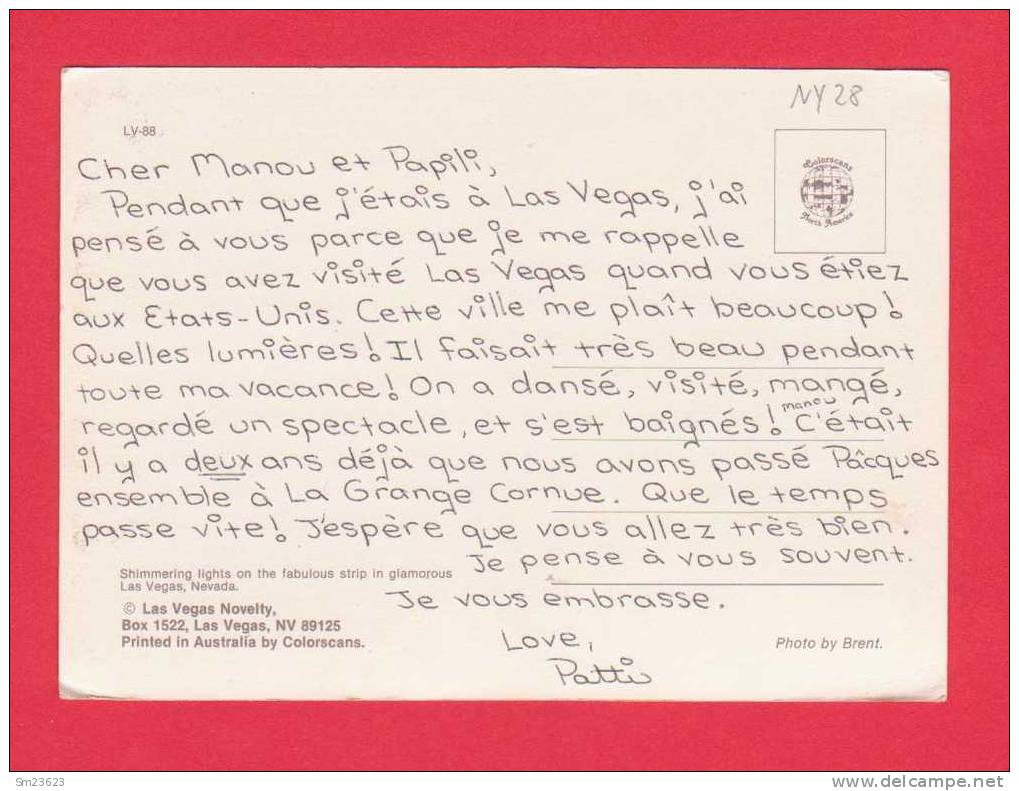 NY 28
LV-88
Colorscans
North America
Cher Manou et Papili,
Pendant que j'étais à Las Vegas, j'ai
pensé à vous parce que je me rappelle
que vous avez visité Las Vegas quand vous étiez
aux Etats-Unis. Cette ville me plaît beaucoup!
Quelles lumières! Il faisait très beau pendant
toute ma vacance! On a dansé, visité, mangé,
regardé un spectacle, et s'est baignés! manou c'était
il y a deux ans déjà que nous avons passé Pâcques
ensemble à La Grange Cornue. Que le temps
passe vite! J'espère que vous allez très bien.
Je pense à vous souvent.
Je vous embrasse.
Love,
Patti
Shimmering lights on the fabulous strip in glamorous
Las Vegas, Nevada.
© Las Vegas Novelty,
Box 1522, Las Vegas, NV 89125
Printed in Australia by Colorscans.
Photo by Brent.
Sm23623
http://www.delcampe.net